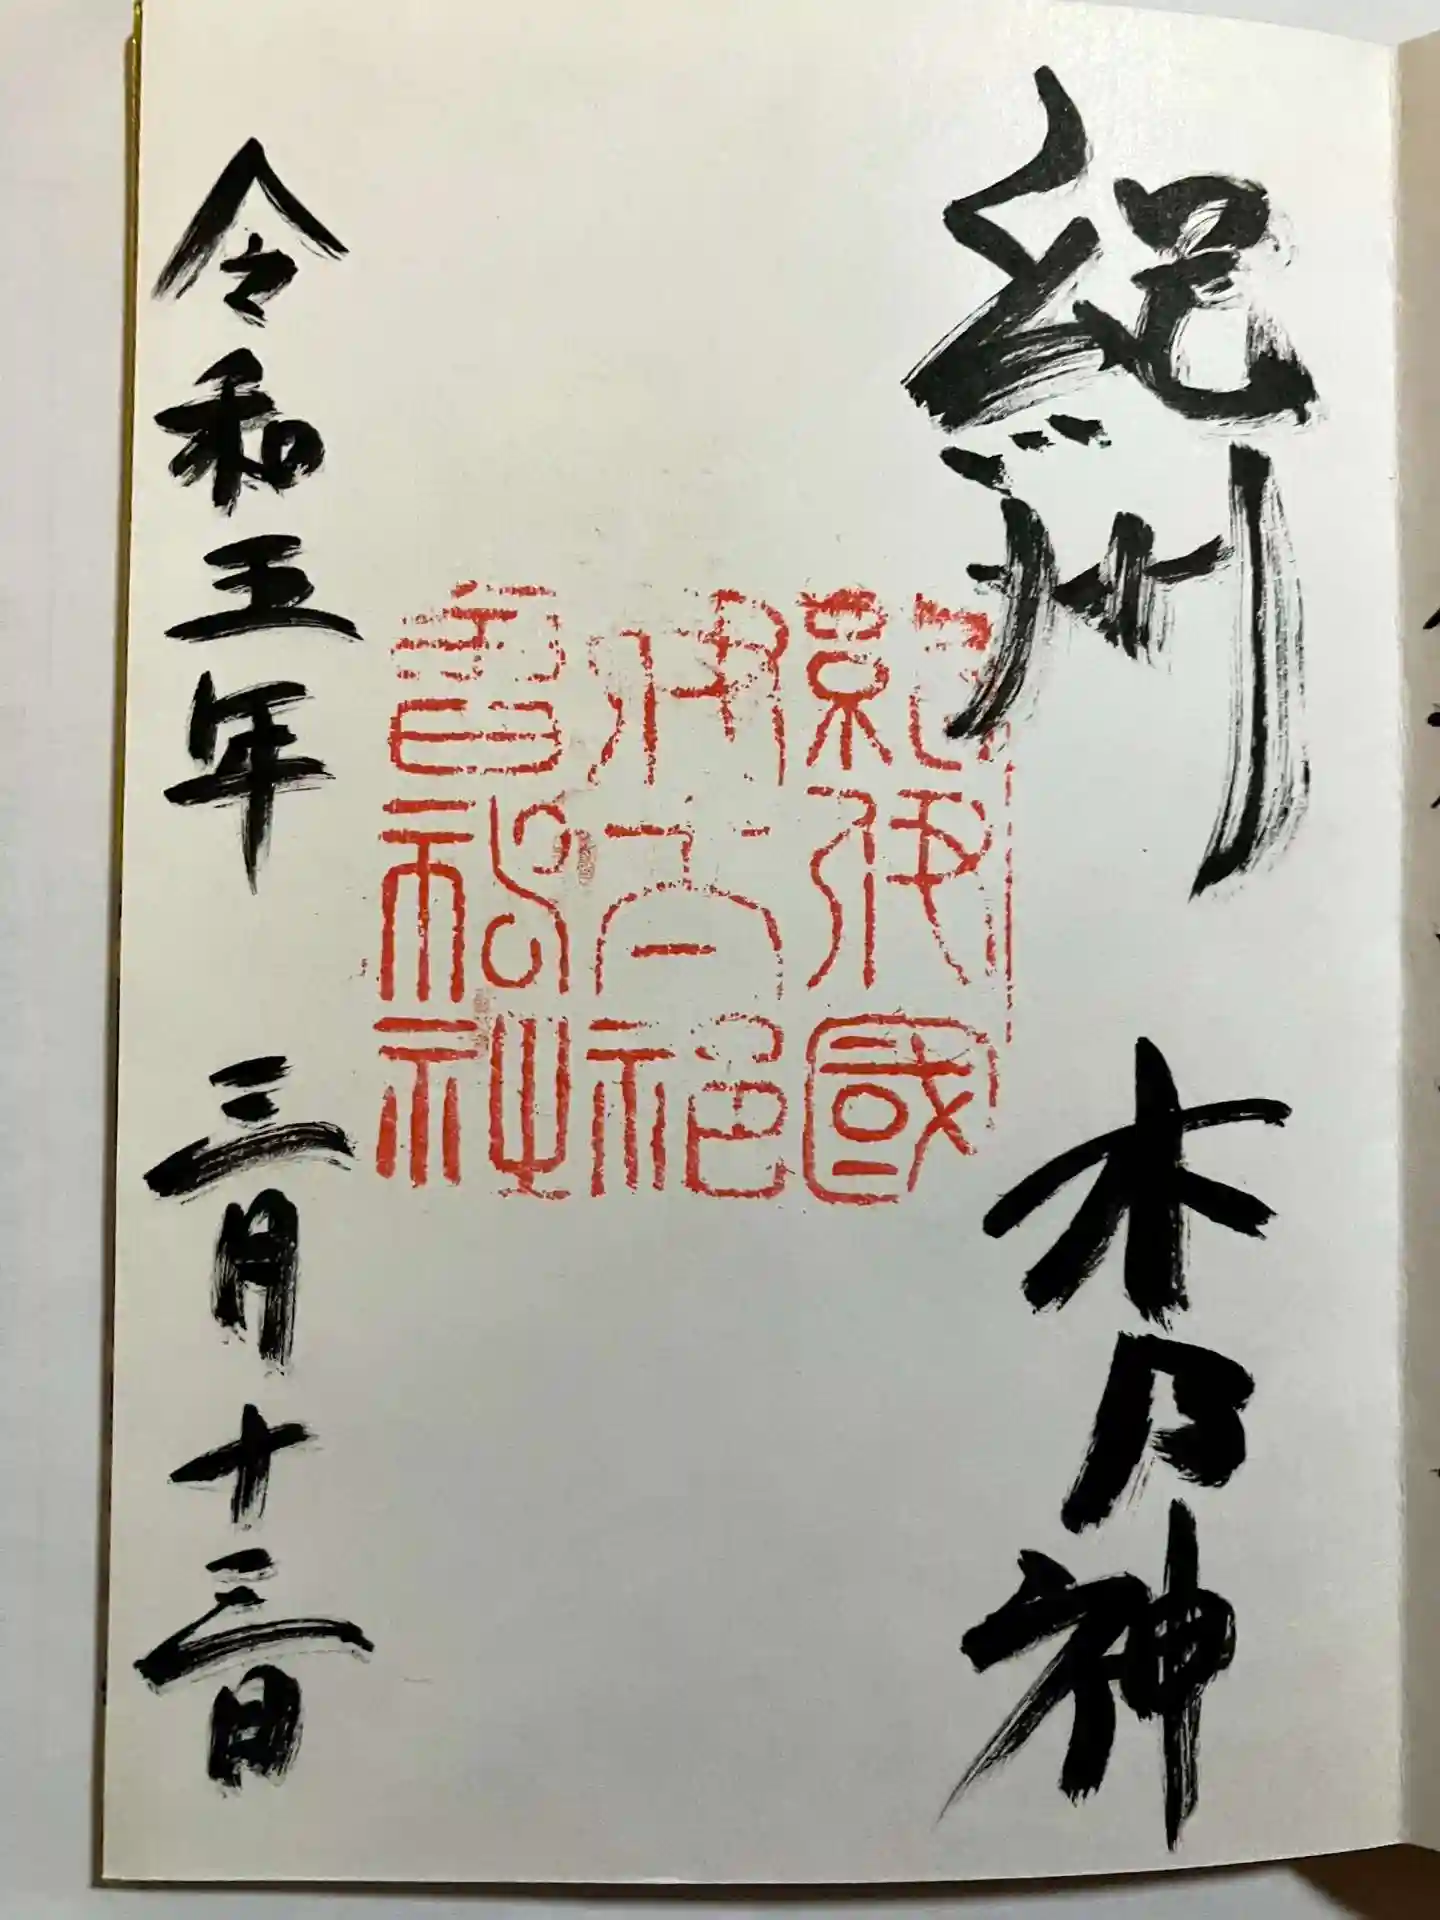 紀州 木乃神
紀伊國
伊太祁
曾神社
令和五年 三月十三日